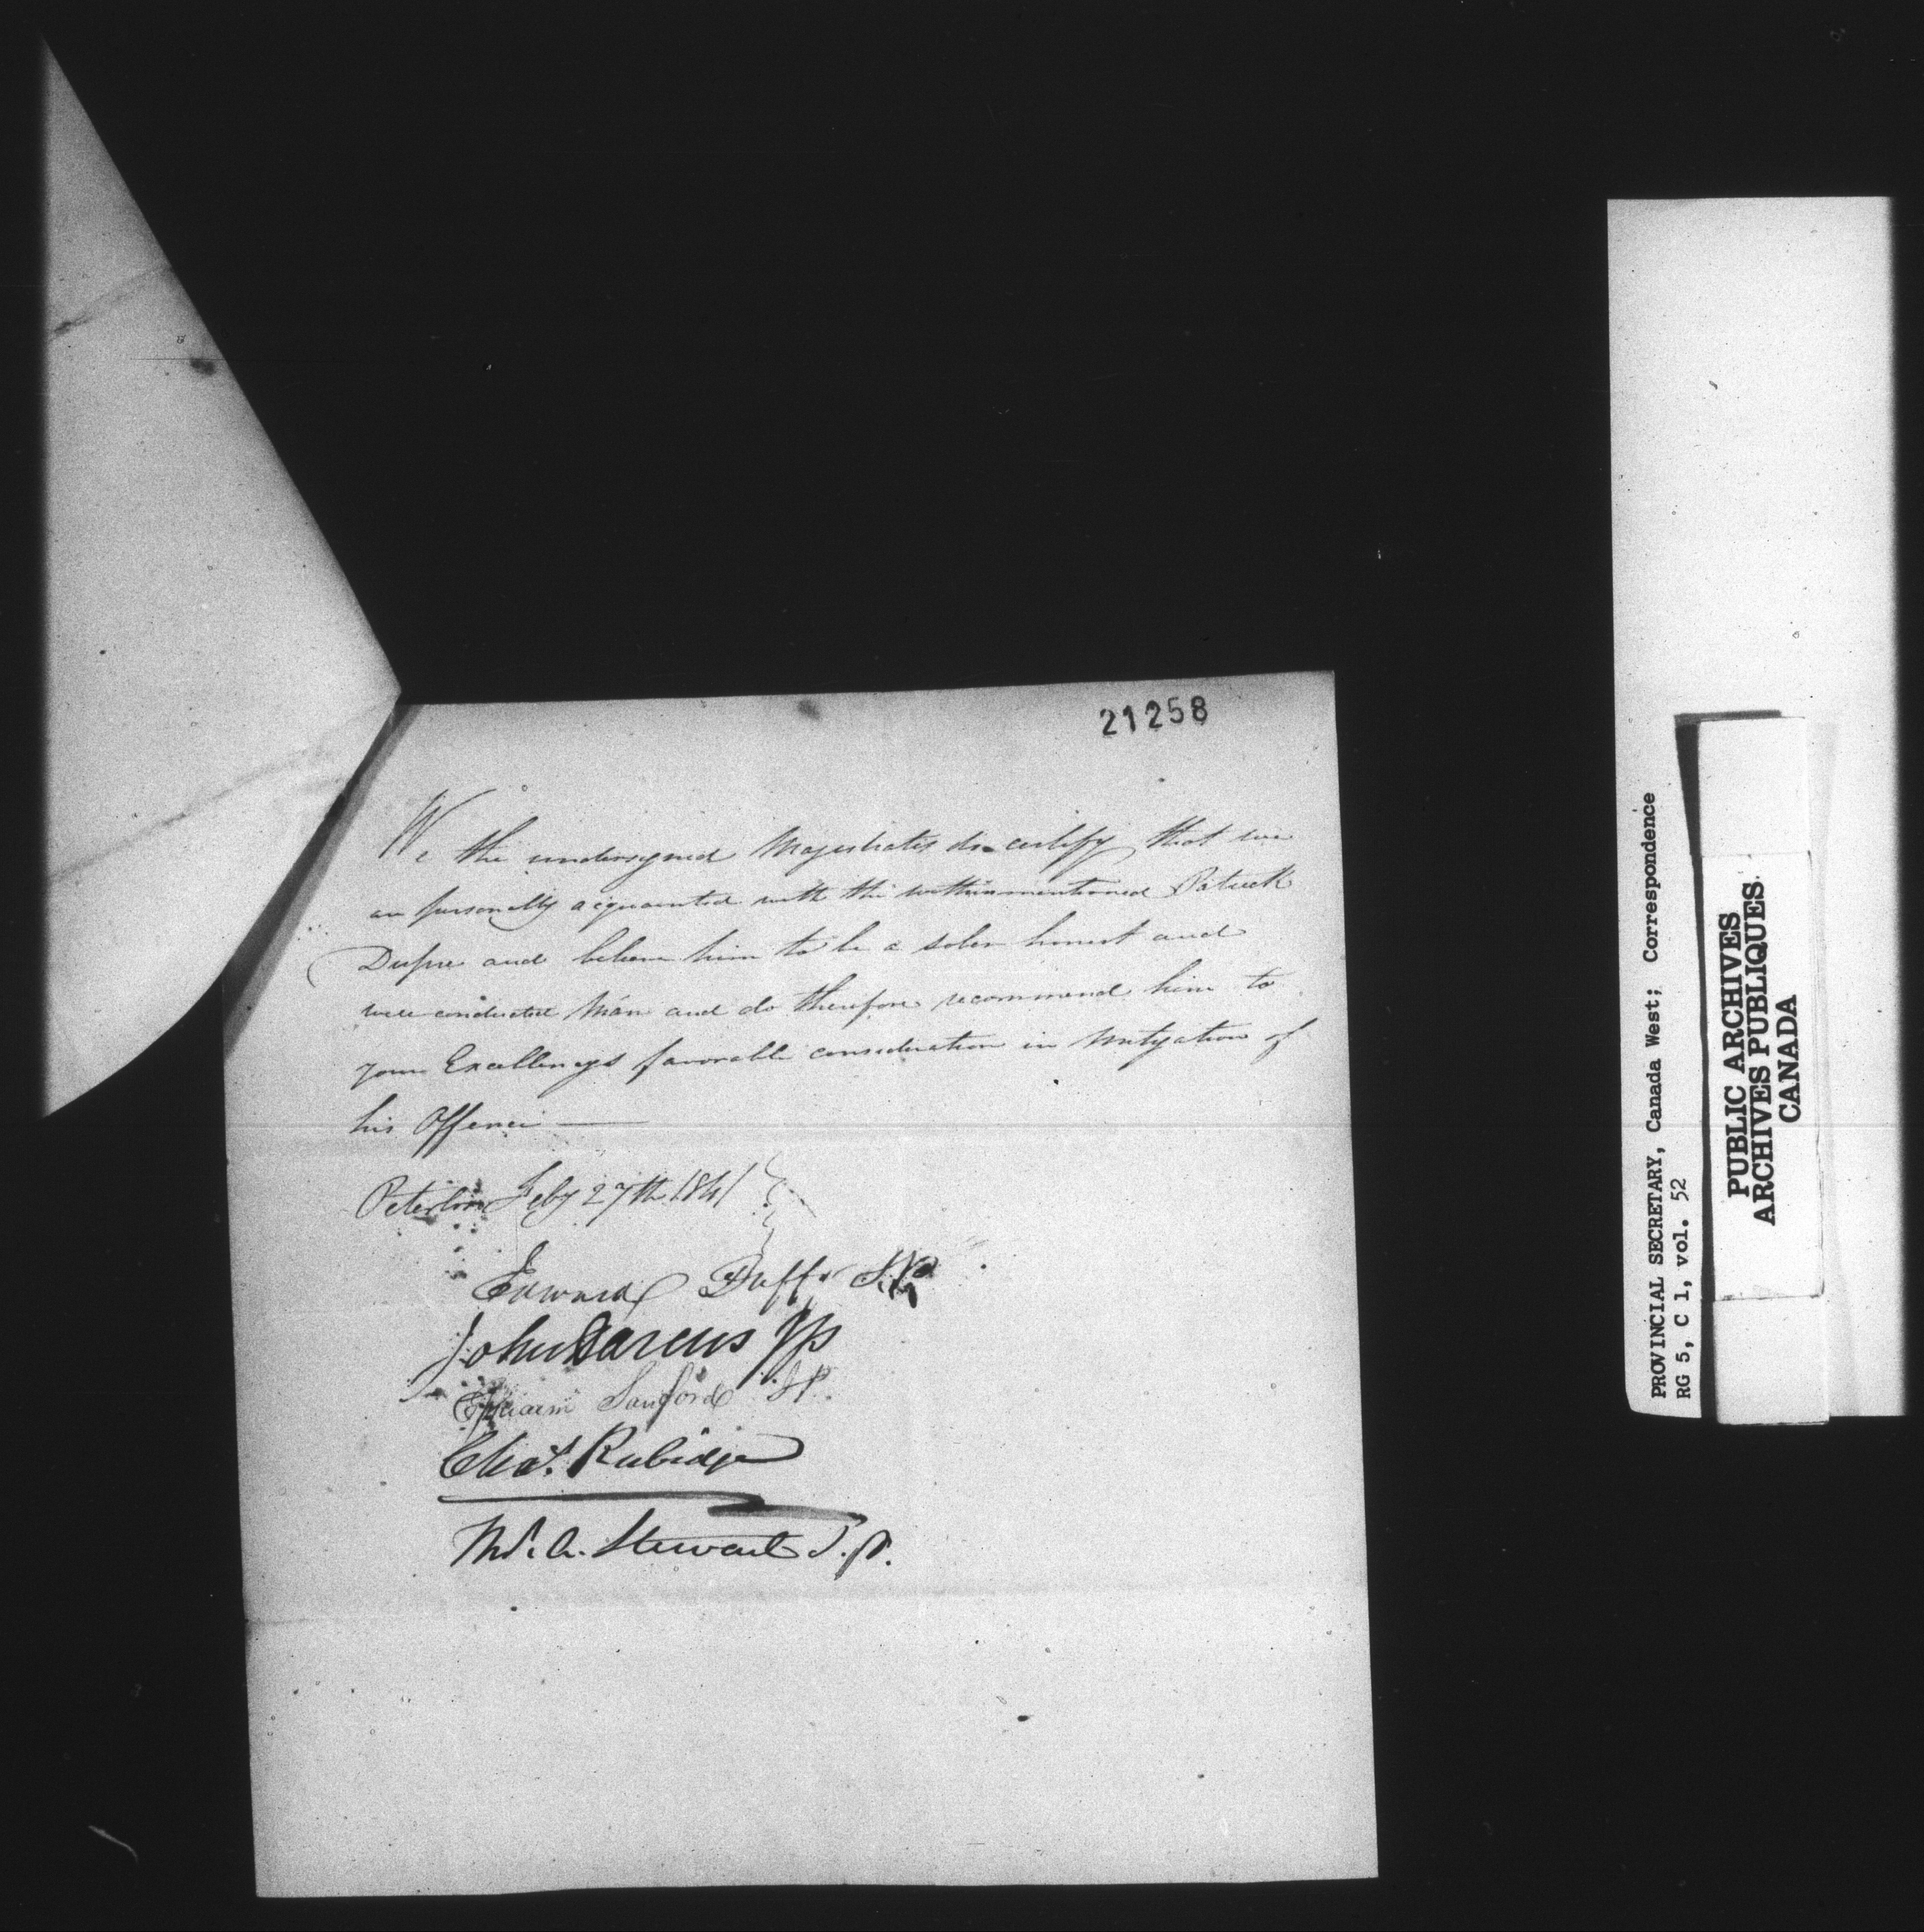 21258
We the undersigned Magistrates do certify that we
are personally acquainted with the within mentioned Patrick
and believe him to be a sober honest and
well conducted Man and do therefore recommend him to
your Excellencys favorable consideration in mitigation of
his Offence —
Feby 27th 1841
Edward Duffy J.P.
John Darcus Jp
Ephraim Sanford J.P.
Chas. Rubidge
Ths. A. Stewart J.P.
PROVINCIAL SECRETARY, Canada West; Correspondence
RG 5, C 1, vol. 52
PUBLIC ARCHIVES
ARCHIVES PUBLIQUES
CANADA